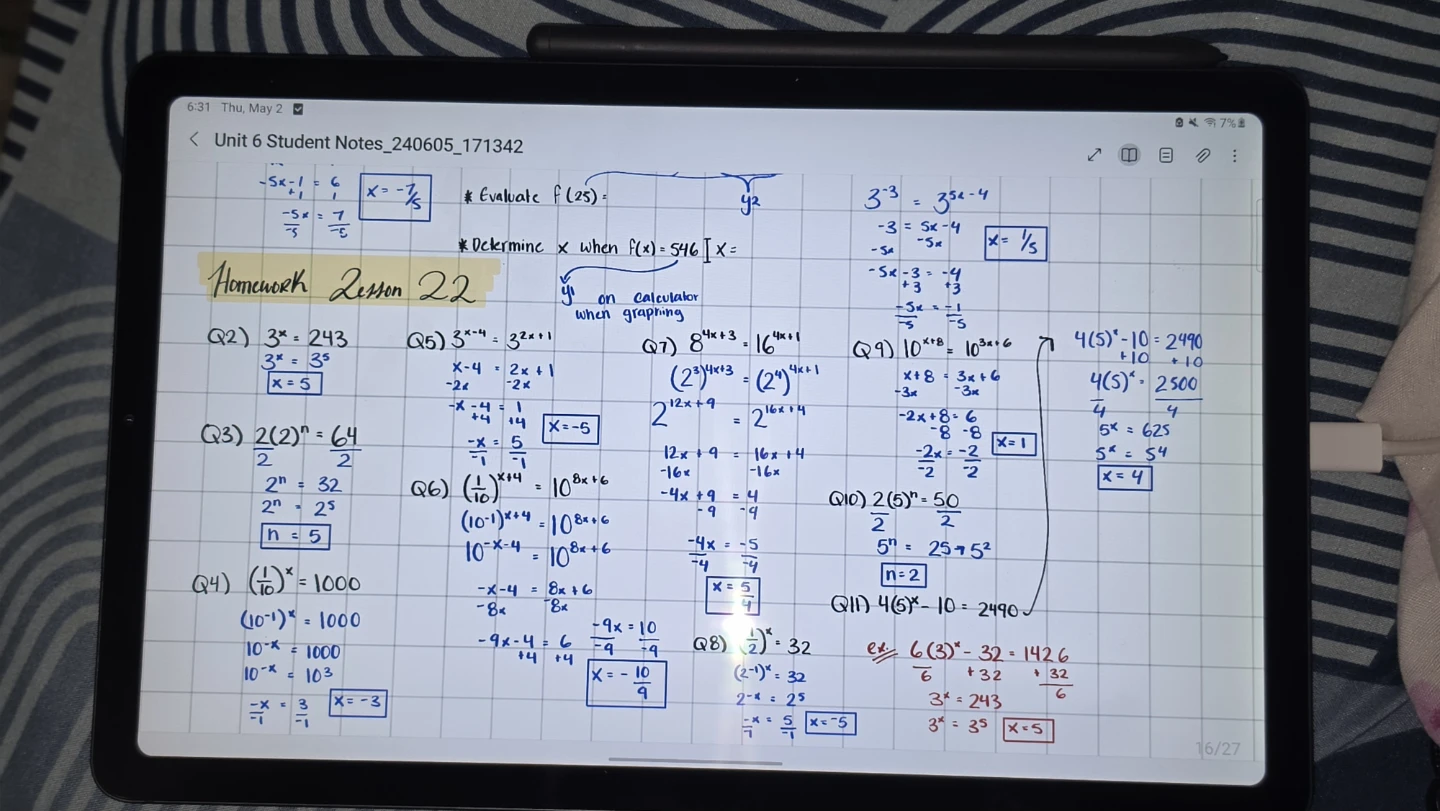 6:31 Thu, May 2
7%
Unit 6 Student Notes_240605_171342
-5x-1 = 6
+1 1
-5x = 7
-5 -5
x = -7/5
* Evaluate f(25) =
y2
* Determine x when f(x) = 546 ] x =
y1 on calculator
when graphing
3^-3 = 3^5x-4
-3 = 5x-4
-5x -5x
-5x-3 = -4
+3 +3
-5x = -1
-5 -5
x = 1/5
Homework Lesson 22
Q2) 3^x = 243
3^x = 3^5
x = 5
Q3) 2(2)^n = 64
2 2
2^n = 32
2^n = 2^5
n = 5
Q4) (1/10)^x = 1000
(10^-1)^x = 1000
10^-x = 1000
10^-x = 10^3
-x = 3
-1 -1
x = -3
Q5) 3^x-4 = 3^2x+1
x-4 = 2x+1
-2x -2x
-x-4 = 1
+4 +4
-x = 5
-1 -1
x = -5
Q6) (1/10)^x+4 = 10^8x+6
(10^-1)^x+4 = 10^8x+6
10^-x-4 = 10^8x+6
-x-4 = 8x+6
-8x -8x
-9x-4 = 6
+4 +4
-9x = 10
-9 -9
x = -10/9
Q7) 8^4x+3 = 16^4x+1
(2^3)^4x+3 = (2^4)^4x+1
2^12x+9 = 2^16x+4
12x+9 = 16x+4
-16x -16x
-4x+9 = 4
-9 -9
-4x = -5
-4 -4
x = 5/4
Q8) (1/2)^x = 32
(2^-1)^x = 32
2^-x = 2^5
-x = 5
-1 -1
x = -5
Q9) 10^x+8 = 10^3x+6
x+8 = 3x+6
-3x -3x
-2x+8 = 6
-8 -8
-2x = -2
-2 -2
x = 1
Q10) 2(5)^n = 50
2 2
5^n = 25 → 5^2
n = 2
Q11) 4(5)^x - 10 = 2490
4(5)^x - 10 = 2490
+10 +10
4(5)^x = 2500
4 4
5^x = 625
5^x = 5^4
x = 4
ex. 6(3)^x - 32 = 1426
6 +32 +32
6
3^x = 243
3^x = 3^5
x = 5
16/27